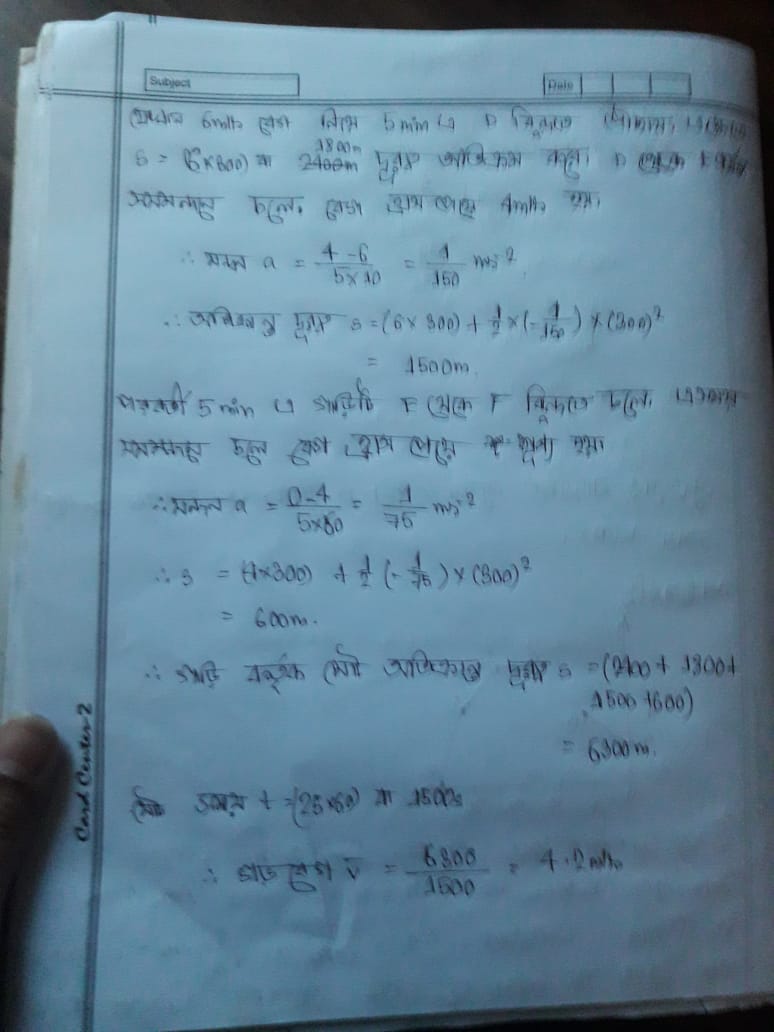 Subject
Date
6m/s বেগ নিয়ে 5 min এ D বিন্দুতে
1800m
S = (6×300) বা 2400m দূরত্ব অতিক্রম করে। D থেকে E
সমমন্দনে চলে, বেগ হ্রাস পেয়ে 4m/s হয়।
∴ মন্দন a = 4-6 / 5×10 = 1 / 150 ms⁻²
∴ অতিক্রান্ত দূরত্ব s = (6×300) + 1/2 × (-1/150) × (300)²
= 1500m.
পরবর্তী 5 min এ গাড়িটি E থেকে F বিন্দুতে চলে।
সমমন্দনে চলে বেগ হ্রাস পেয়ে শূন্য হয়।
∴ মন্দন a = 0-4 / 5×60 = 1 / 75 ms⁻²
∴ s = (4×300) + 1/2 (-1/75) × (300)²
= 600m.
∴ গাড়ি কর্তৃক মোট অতিক্রান্ত দূরত্ব s = (2400 + 1800 +
1500 + 600)
= 6300m.
মোট সময় t = (25×60) বা 1500s
∴ গড়বেগ v̄ = 6300 / 1500 = 4.2 m/s
Card Center-2